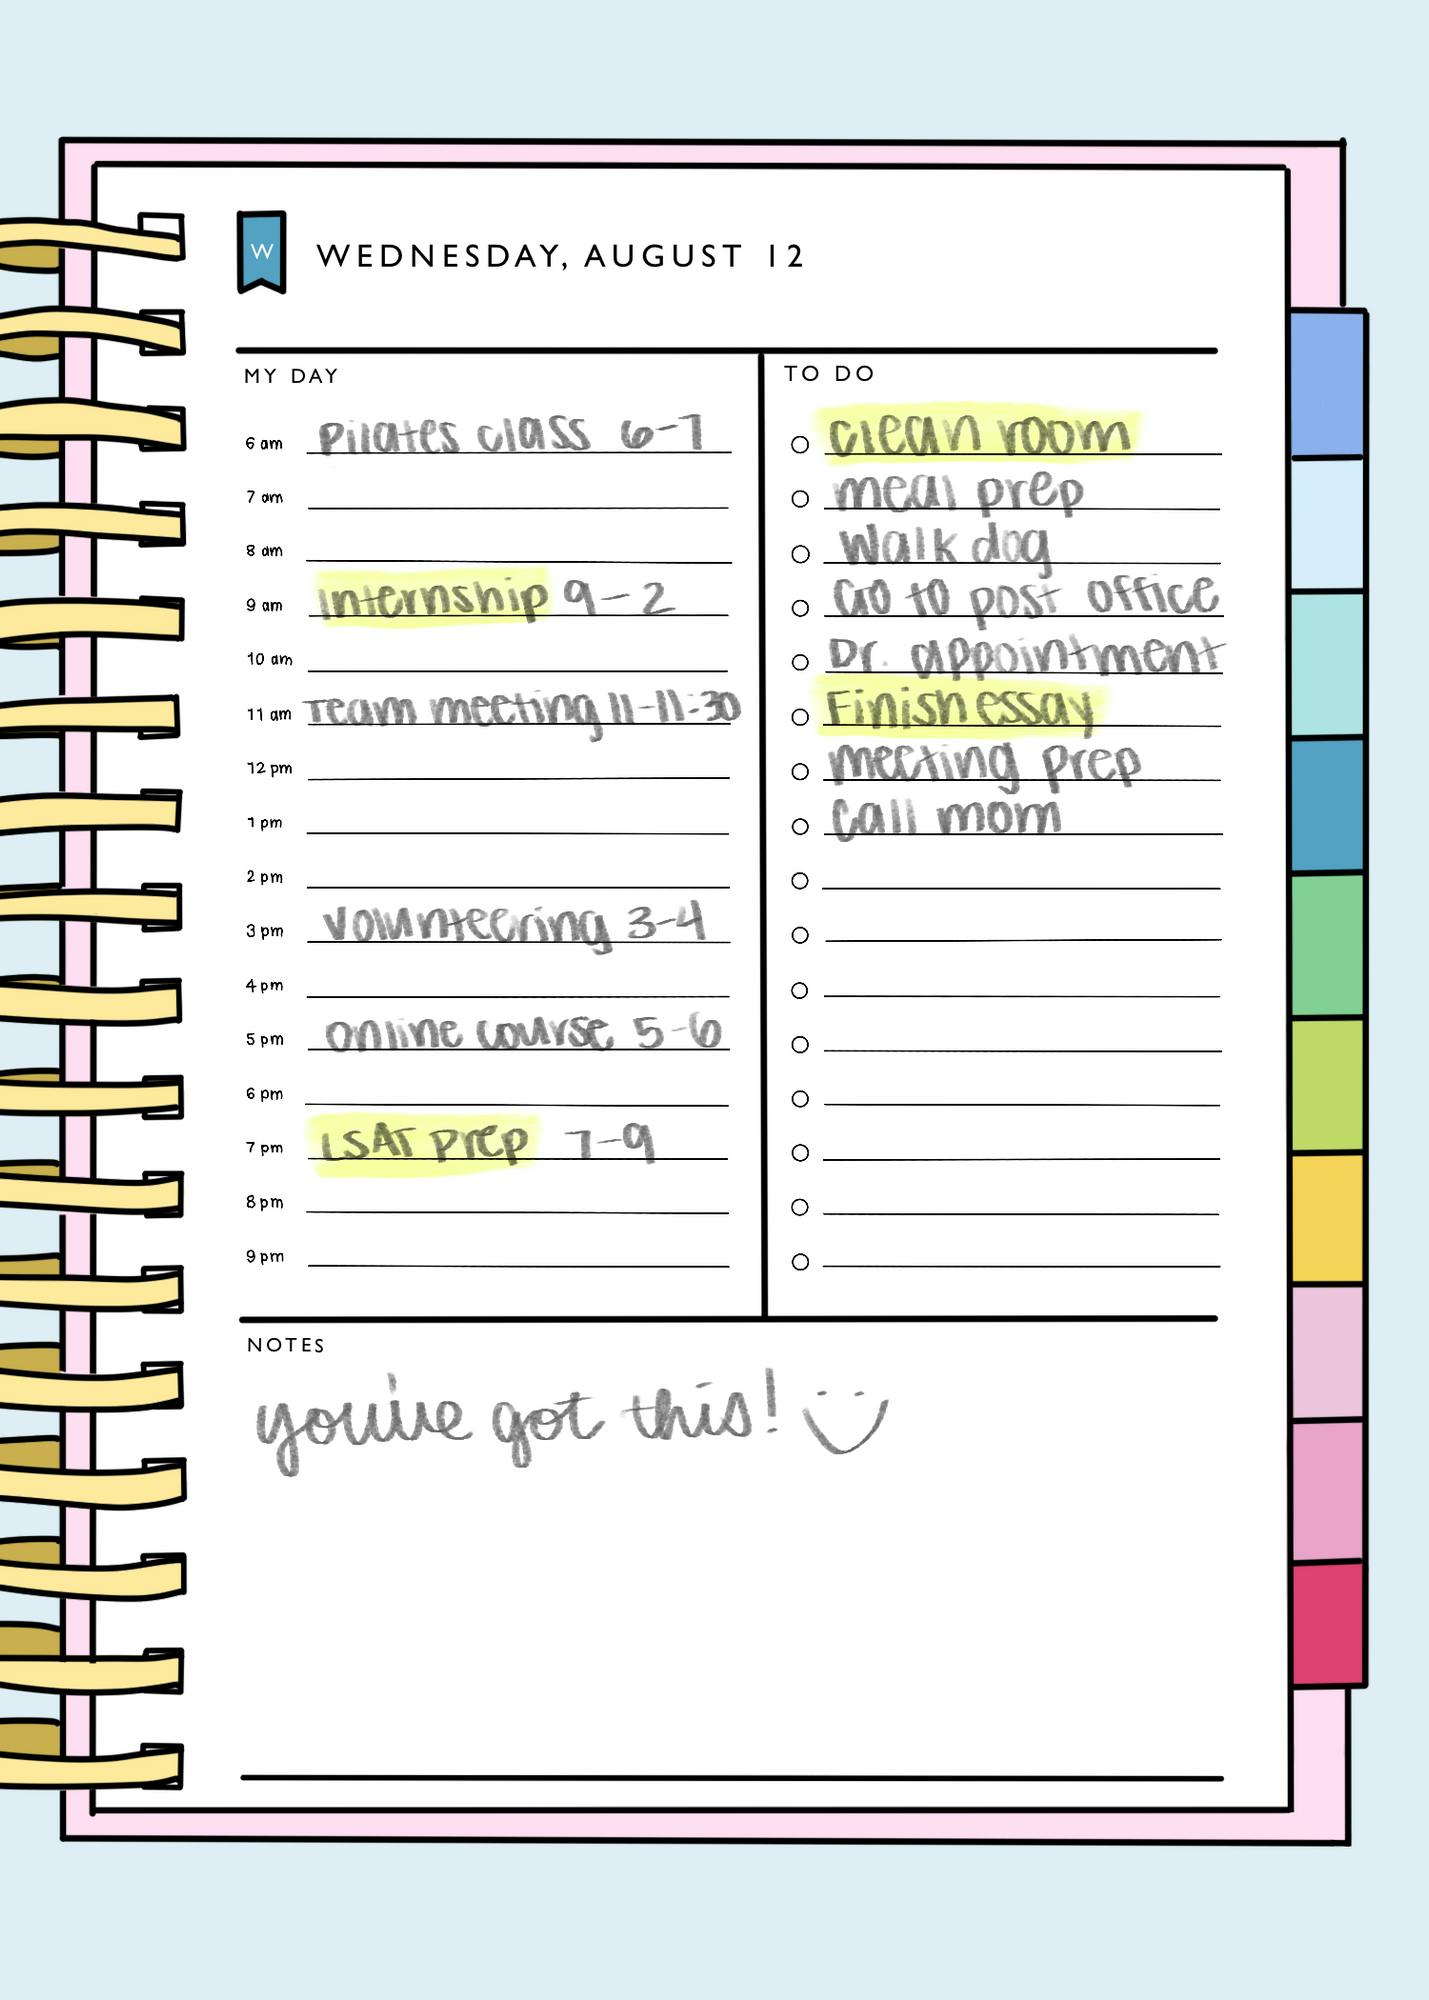 W
WEDNESDAY, AUGUST 12
MY DAY
6 am Pilates class 6-7
7 am
8 am
9 am Internship 9-2
10 am
11 am Team meeting 11-11:30
12 pm
1 pm
2 pm
3 pm Volunteering 3-4
4 pm
5 pm Online course 5-6
6 pm
7 pm LSAT Prep 7-9
8 pm
9 pm
TO DO
clean room
meal prep
Walk dog
Go to post office
Dr. appointment
Finish essay
meeting prep
Call mom
NOTES
you've got this!